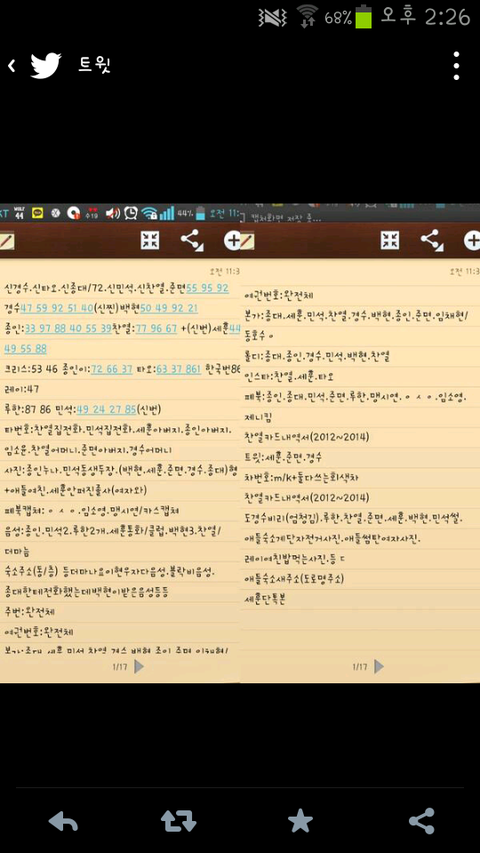 68% 오후 2:26
트윗
KT 44% 오전 11:3
캡처화면 저장 중...
오전 11:3
신경수.신타오.신종대/72.신민석.신찬열.준면55 95 92
경수47 59 92 51 40(신찐)백현50 49 92 21
종인:33 97 88 40 55 39찬열:77 96 67 +(신번)세훈44
49 55 88
크리스:53 46 종인이:72 66 37 타오:63 37 861 한국번86
레이:47
루한:87 86 민석:49 24 27 85(신번)
타번호:찬열집전화.민석집전화.세훈아버지.종인아버지.
임소윤.찬열어머니.준면아버지.경수어머니
사진:종인누나.민석동생두장.(백현.세훈.준면.경수.종대)형
+애들여친.세훈안퍼진졸사(여자와)
페북캡쳐:ㅇ ㅅ ㅇ.임소영.맹시연/카스캡쳐
음성:종인.민석2.루한2개.세훈통화/클럽.백현3.찬열/
더마늠
숙소주소(동/층) 등더마나요이현우자다음성.블락비음성.
종대한테전화했는데백현이받은음성등등
주번:완전체
여권번호:완전체
본가:종대.세훈.민석.찬열.경수.백현.종인.준면.임채현/
1/17
오전 11:3
여권번호:완전체
본가:종대.세훈.민석.찬열.경수.백현.종인.준면.임채현/
동호수ㅇ
폴디:종대.종인.경수.민석.백현.찬열
인스타:찬열.세훈.타오
페북:종인.종대.민석.준면.루한.맹시연.ㅇ ㅅ ㅇ.임소영.
제니킴
찬열카드내역서(2012~2014)
트윗:세훈.준면.경수
차번호:m/k+둘다쓰는회색차
찬열카드내역서(2012~2014)
도경수비리(엄청김).루한.찬열.준면.세훈.백현.민석썰.
애들숙소계단자전거사진.애들썸탄여자사진.
레이여친밥먹는사진.등ㄷ
애들숙소새주소(도로명주소)
세훈단톡본
1/17